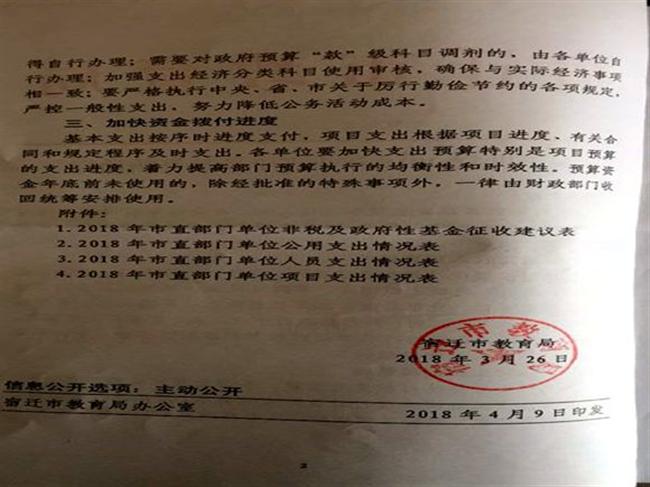 得自行办理；需要对政府预算“款”级科目调剂的，由各单位自
行办理；加强支出经济分类科目使用审核，确保与实际经济事项
相一致；要严格执行中央、省、市关于厉行勤俭节约的各项规定，
严控一般性支出，努力降低公务活动成本。
三、加快资金拨付进度
基本支出按序时进度支付，项目支出根据项目进度、有关合
同和规定程序及时支出。各单位要加快支出预算特别是项目预算
的支出进度，着力提高部门预算执行的均衡性和时效性。预算资
金年底前未使用的，除经批准的特殊事项外，一律由财政部门收
回统筹安排使用。
附件：
1.2018年市直部门单位非税及政府性基金征收建议表
2.2018年市直部门单位公用支出情况表
3.2018年市直部门单位人员支出情况表
4.2018年市直部门单位项目支出情况表
宿迁市教育局
2018年3月26日
信息公开选项：主动公开
宿迁市教育局办公室 2018年4月9日印发
2